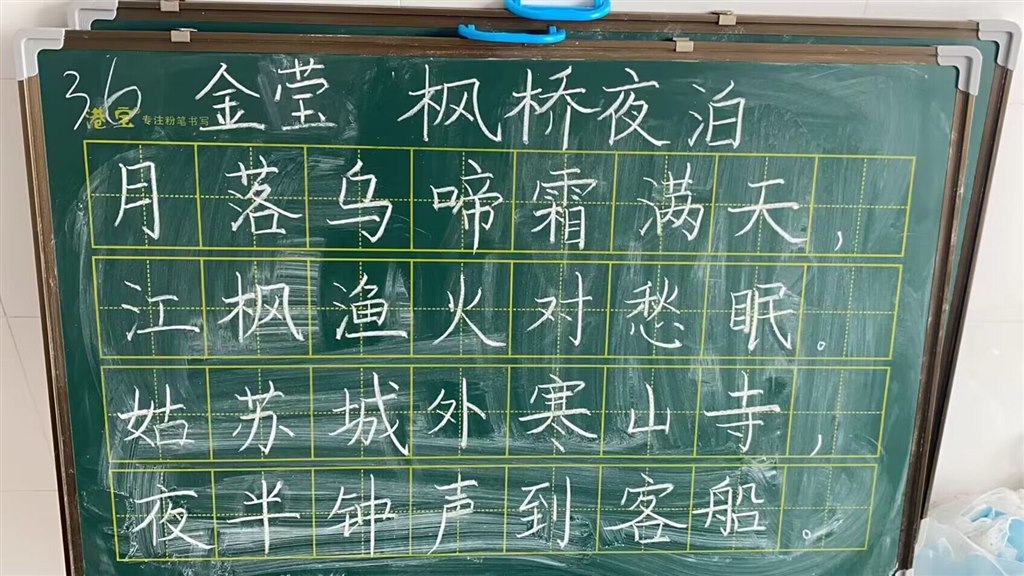 36 金莹 枫桥夜泊
港宝 专注粉笔书写
月落乌啼霜满天，
江枫渔火对愁眠。
姑苏城外寒山寺，
夜半钟声到客船。